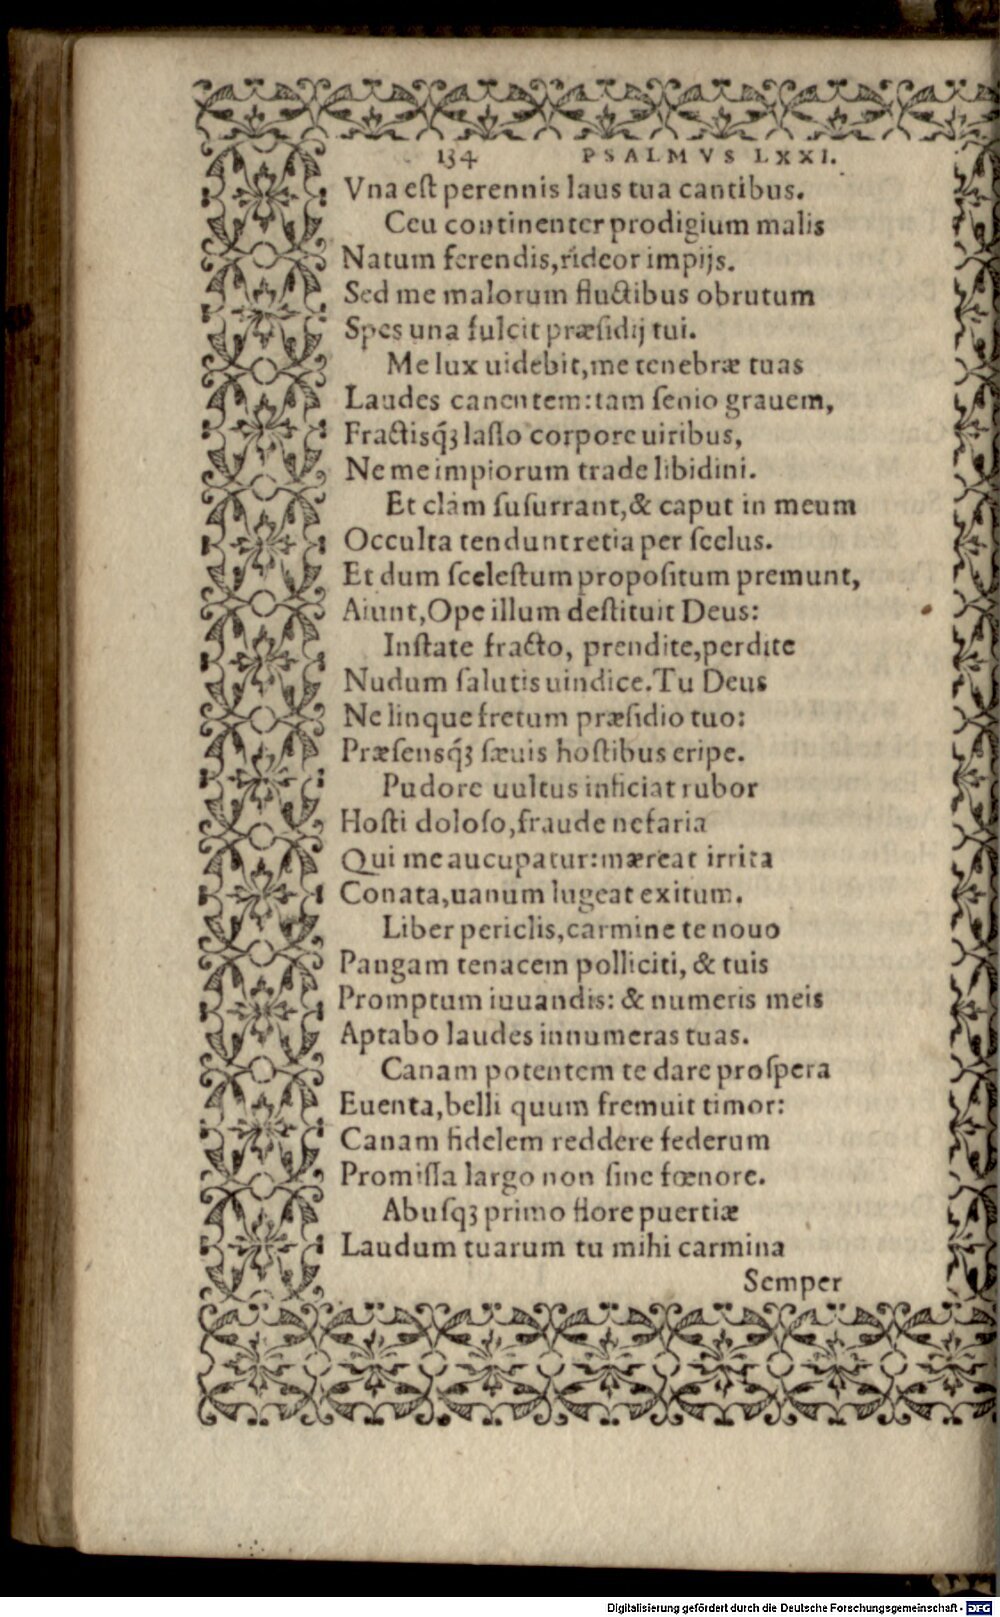 134 PSALMVS LXXI.
Vna eſt perennis laus tua cantibus.
Ceu continenter prodigium malis
Natum ferendis, rídeor impijs.
Sed me malorum fluctibus obrutum
Spes una fulcit præſidij tui.
Me lux uidebit, me tenebræ tuas
Laudes canentem: tam ſenio grauem,
Fractisq́ꝫ laſſo corpore uiribus,
Ne me impiorum trade libidini.
Et clàm ſuſurrant, & caput in meum
Occulta tendunt retia per ſcelus.
Et dum ſceleſtum propoſitum premunt,
Aiunt, Ope illum deſtituit Deus:
Inſtate fracto, prendite, perdite
Nudum ſalutis uindice. Tu Deus
Ne linque fretum præſidio tuo:
Præſensq́ꝫ ſæuis hoſtibus eripe.
Pudore uultus inficiat rubor
Hoſti doloſo, fraude nefaria
Qui me aucupatur: mæreat irrita
Conata, uanum lugeat exitum.
Liber periclis, carmine te nouo
Pangam tenacem polliciti, & tuis
Promptum iuuandis: & numeris meis
Aptabo laudes innumeras tuas.
Canam potentem te dare proſpera
Euenta, belli quum fremuit timor:
Canam fidelem reddere federum
Promiſſa largo non ſine fœnore.
Abuſqꝫ primo flore puertiæ
Laudum tuarum tu mihi carmina
Semper
Digitalisierung gefördert durch die Deutsche Forschungsgemeinschaft - DFG